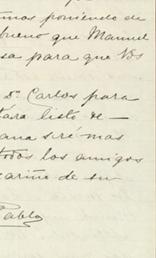 mos poniendo de
bueno que Manuel
sa para que Vds
Dn. Carlos para
tara listo de —
ana seré mas
todos los amigos
cariño de su
Pablo